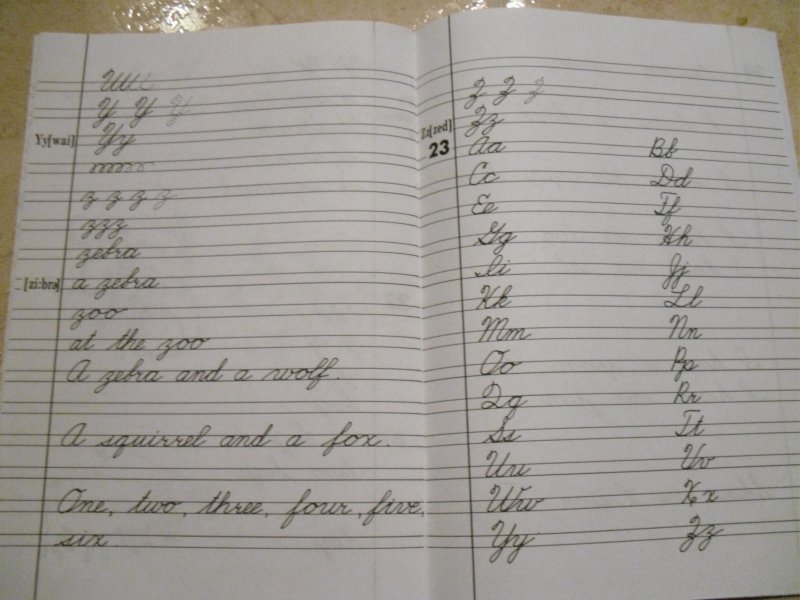 Y Y
Yy [wai] Yy
z z z z
zzz
zebra
[zi:brə] a zebra
zoo
at the zoo
A zebra and a wolf.
A squirrel and a fox.
One, two, three, four, five,
six.
Z Z Z
Zz [zed] Zz
23 Aa Bb
Cc Dd
Ee Ff
Gg Hh
Ii Jj
Kk Ll
Mm Nn
Oo Pp
Qq Rr
Ss Tt
Uu Vv
Ww Xx
Yy Zz